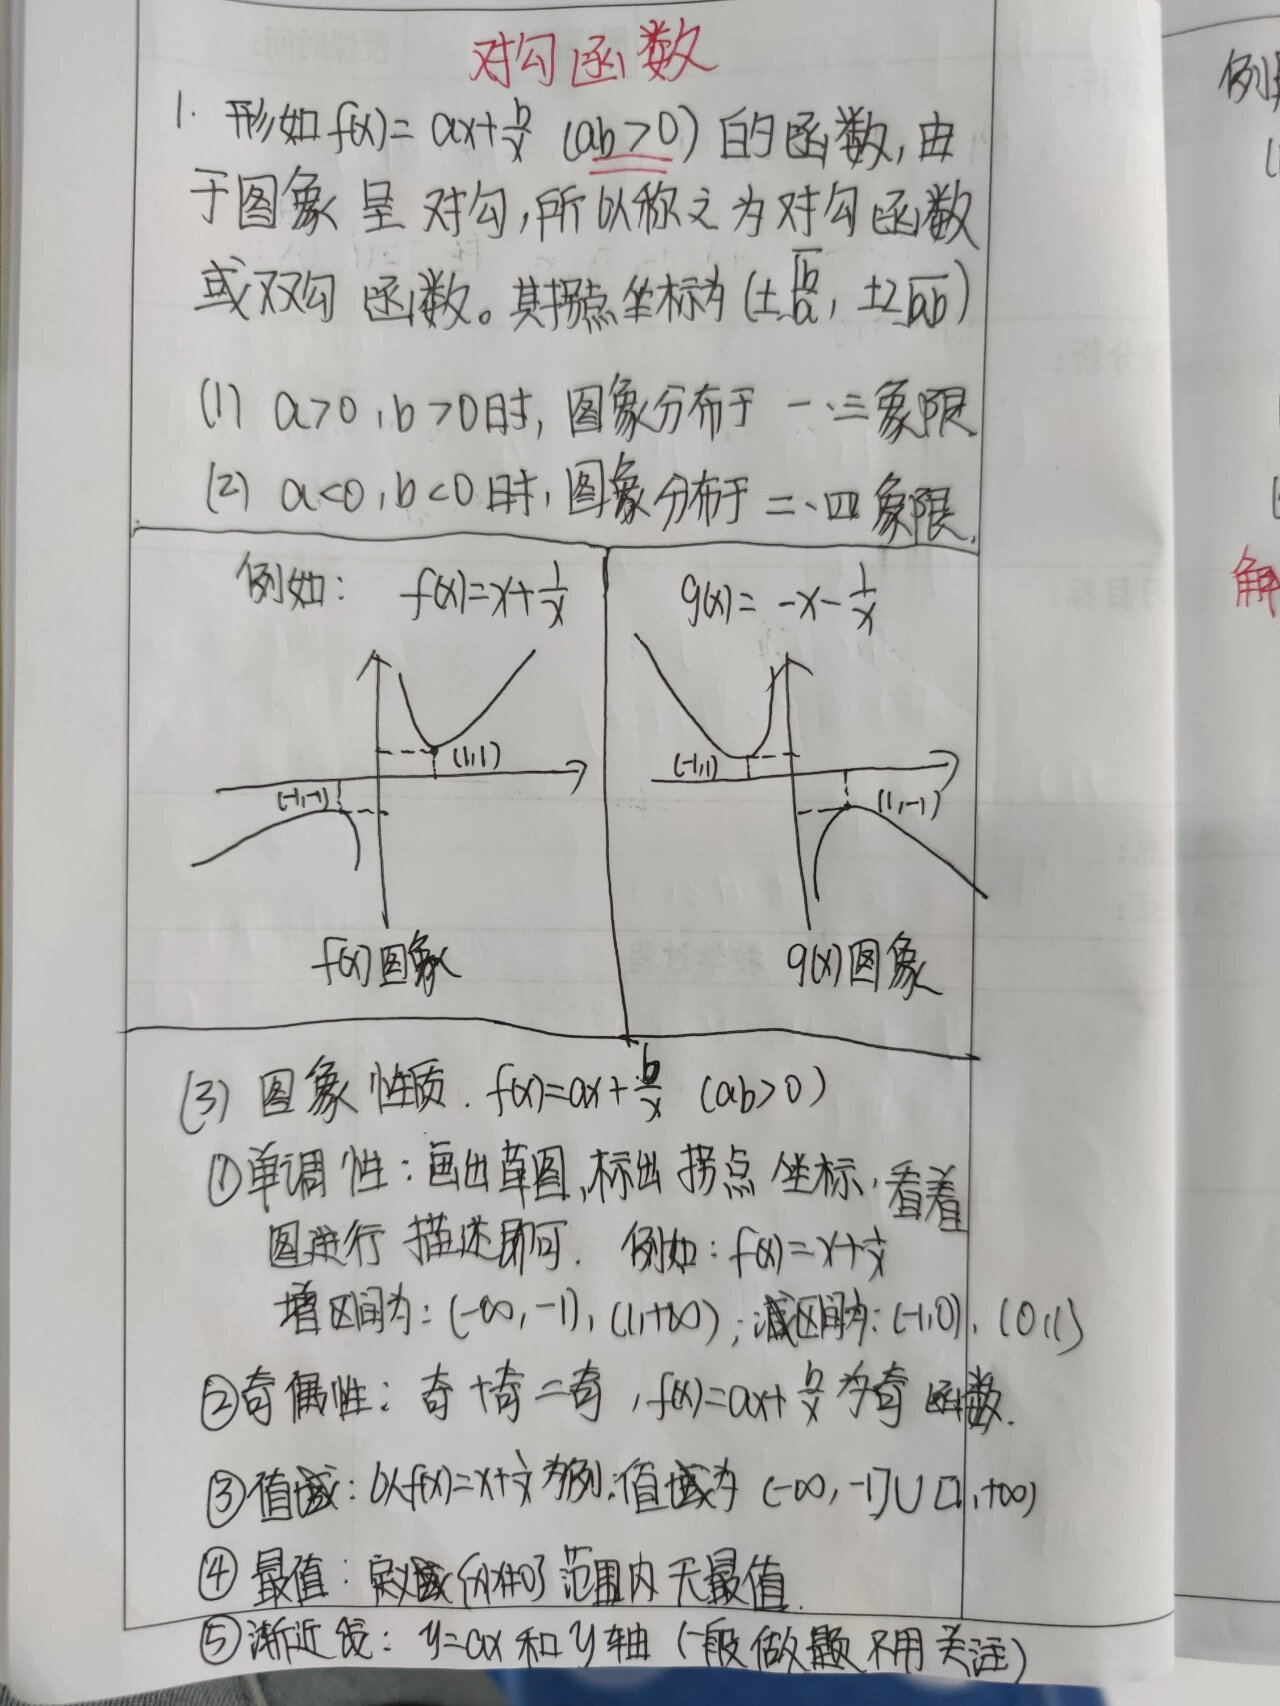 对勾函数
1. 形如f(x)=ax+b/x (ab>0)的函数,由
于图象呈对勾,所以称之为对勾函数
或双勾函数。其拐点坐标为(±√(b/a), ±2√(ab))
(1) a>0,b>0时,图象分布于一、三象限
(2) a<0,b<0时,图象分布于二、四象限.
例如: f(x)=x+1/x
(1,1)
(-1,-1)
f(x)图象
g(x)= -x-1/x
(-1,1)
(1,-1)
g(x)图象
(3) 图象性质. f(x)=ax+b/x (ab>0)
①单调性:画出草图,标出拐点坐标,看着
图进行描述即可. 例如:f(x)=x+1/x
增区间为:(-∞,-1),(1,+∞);减区间为:(-1,0),(0,1)
②奇偶性:奇+奇=奇,f(x)=ax+b/x为奇函数.
③值域:以f(x)=x+1/x为例:值域为(-∞,-1]∪[1,+∞)
④最值:定义域{x|x≠0}范围内无最值.
⑤渐近线:y=ax和y轴(一般做题不用关注)
例
(
解